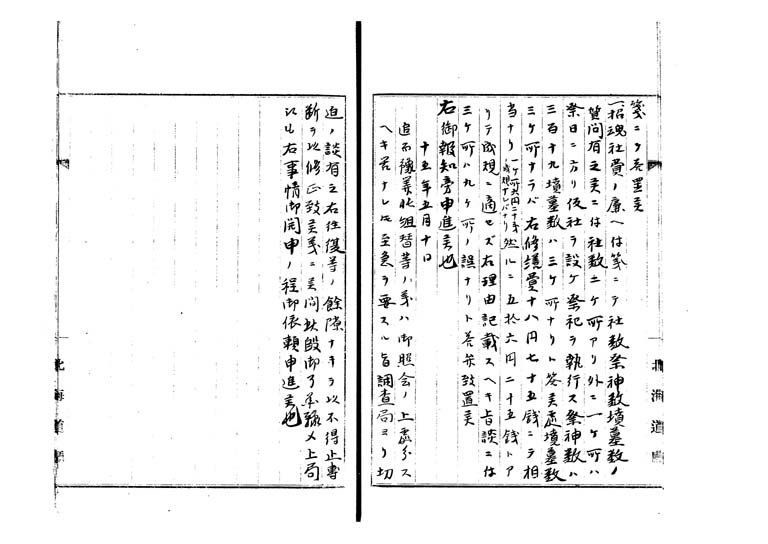 箋ニケ差置矣
一招魂社費ノ廉ヘハ箋ニテ社数祭神数墳墓数ノ
質問有之矣ニハ社数三ケ所アリ外ニ一ケ所ハ
祭日ニ方リ仮社ヲ設ケ祭祀ヲ執行ス祭神数ハ
三百十九墳墓数ハ三ケ所ナリト答矣処墳墓数
三ケ所ナラバ右修繕費十八円七十五銭ニテ相
当ナリ 然ルニ五拾六円二十五銭トア
リテ成規ニ適セズ右理由記載スヘキ旨談ニハ
三ケ所ハ九ケ所ノ誤ナリト答弁致置矣
右御報知旁申進矣也
十五年五月十日
追而予算北組替等ノ義ハ御照会ノ上処分ス
ヘキ筈ナレ氏至急ヲ要スル旨調査局ヨリ切
迫ノ談有之右往復等ノ余隙ナキヲ以不得止専
断ヲ以修正致矣義ニ矣間此段御了承
上局
右事情御開申ノ程御依頼申進矣也
北海道庁
北海道庁